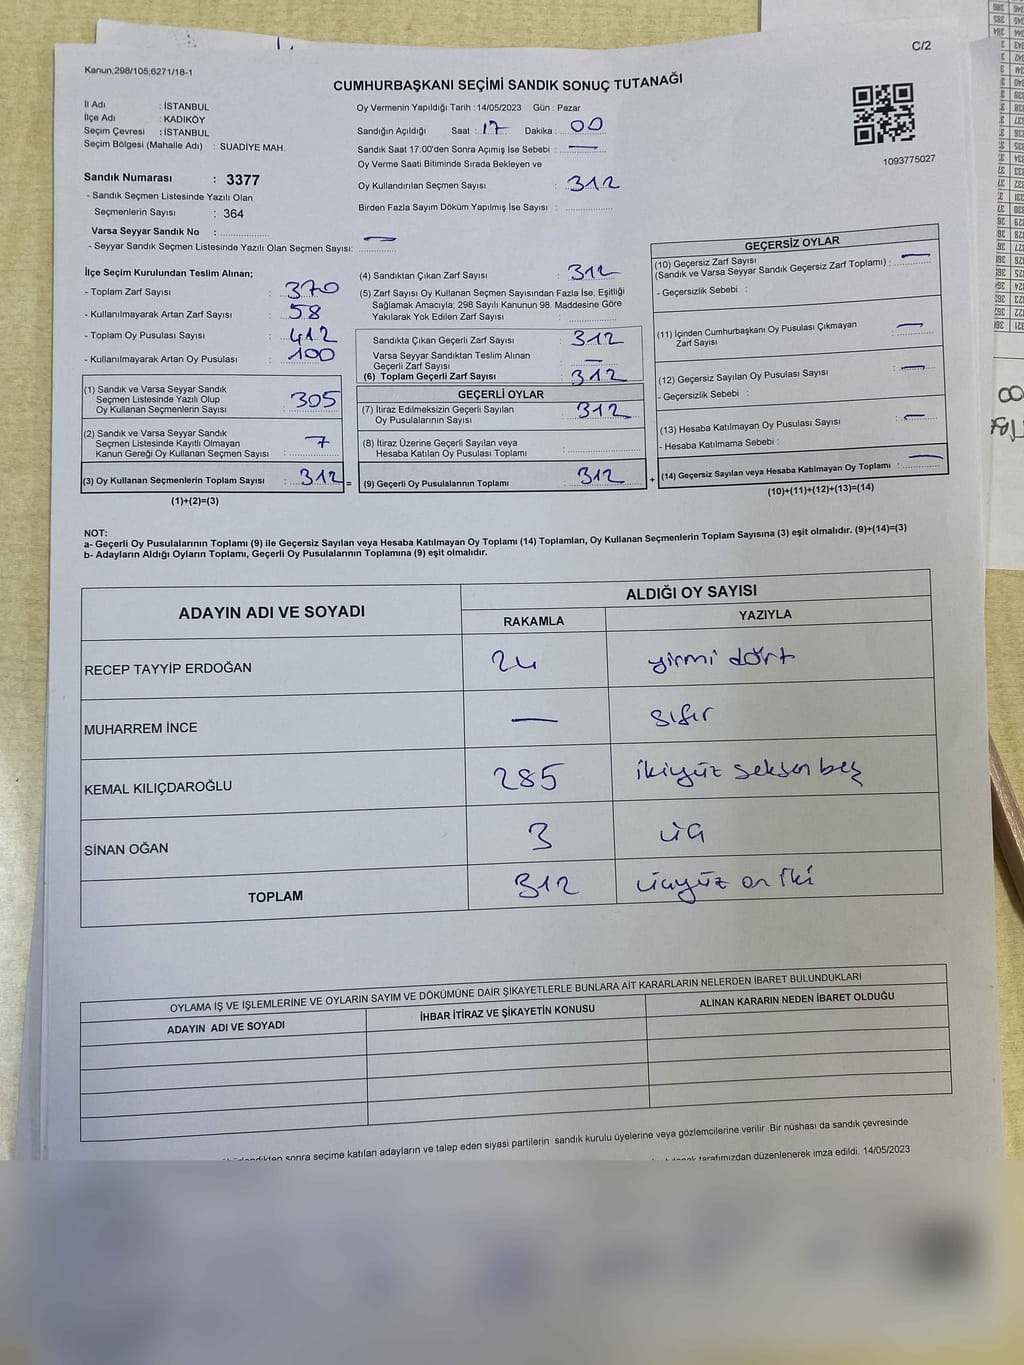 C/2
Kanun:298/105,6271/18-1
CUMHURBAŞKANI SEÇİMİ SANDIK SONUÇ TUTANAĞI
İl Adı : İSTANBUL
İlçe Adı : KADIKÖY
Seçim Çevresi : İSTANBUL
Seçim Bölgesi (Mahalle Adı) : SUADİYE MAH.
Oy Vermenin Yapıldığı Tarih : 14/05/2023 Gün : Pazar
Sandığın Açıldığı Saat : 17 Dakika : 00
Sandık Saat 17:00'den Sonra Açımış İse Sebebi : —
Oy Verme Saati Bitiminde Sırada Bekleyen ve
Oy Kullandırılan Seçmen Sayısı : 312
Birden Fazla Sayım Döküm Yapılmış İse Sayısı :
1093775027
Sandık Numarası : 3377
- Sandık Seçmen Listesinde Yazılı Olan
Seçmenlerin Sayısı : 364
Varsa Seyyar Sandık No :
- Seyyar Sandık Seçmen Listesinde Yazılı Olan Seçmen Sayısı: —
İlçe Seçim Kurulundan Teslim Alınan;
- Toplam Zarf Sayısı : 370
- Kullanılmayarak Artan Zarf Sayısı : 58
- Toplam Oy Pusulası Sayısı : 412
- Kullanılmayarak Artan Oy Pusulası : 100
(1) Sandık ve Varsa Seyyar Sandık
Seçmen Listesinde Yazılı Olup
Oy Kullanan Seçmenlerin Sayısı : 305
(2) Sandık ve Varsa Seyyar Sandık
Seçmen Listesinde Kayıtlı Olmayan
Kanun Gereği Oy Kullanan Seçmen Sayısı : 7
(3) Oy Kullanan Seçmenlerin Toplam Sayısı : 312 =
(1)+(2)=(3)
(4) Sandıktan Çıkan Zarf Sayısı : 312
(5) Zarf Sayısı Oy Kullanan Seçmen Sayısından Fazla İse, Eşitliği
Sağlamak Amacıyla; 298 Sayılı Kanunun 98. Maddesine Göre
Yakılarak Yok Edilen Zarf Sayısı :
Sandıkta Çıkan Geçerli Zarf Sayısı : 312
Varsa Seyyar Sandıktan Teslim Alınan
Geçerli Zarf Sayısı : —
(6) Toplam Geçerli Zarf Sayısı : 312
GEÇERLİ OYLAR
(7) İtiraz Edilmeksizin Geçerli Sayılan
Oy Pusulalarının Sayısı : 312
(8) İtiraz Üzerine Geçerli Sayılan veya
Hesaba Katılan Oy Pusulası Toplamı :
(9) Geçerli Oy Pusulalarının Toplamı : 312 +
GEÇERSİZ OYLAR
(10) Geçersiz Zarf Sayısı
(Sandık ve Varsa Seyyar Sandık Geçersiz Zarf Toplamı) : —
- Geçersizlik Sebebi :
(11) İçinden Cumhurbaşkanı Oy Pusulası Çıkmayan
Zarf Sayısı : —
(12) Geçersiz Sayılan Oy Pusulası Sayısı : —
- Geçersizlik Sebebi :
(13) Hesaba Katılmayan Oy Pusulası Sayısı : —
- Hesaba Katılmama Sebebi :
(14) Geçersiz Sayılan veya Hesaba Katılmayan Oy Toplamı : —
(10)+(11)+(12)+(13)=(14)
NOT:
a- Geçerli Oy Pusulalarının Toplamı (9) ile Geçersiz Sayılan veya Hesaba Katılmayan Oy Toplamı (14) Toplamları, Oy Kullanan Seçmenlerin Toplam Sayısına (3) eşit olmalıdır. (9)+(14)=(3)
b- Adayların Aldığı Oyların Toplamı, Geçerli Oy Pusulalarının Toplamına (9) eşit olmalıdır.
ADAYIN ADI VE SOYADI ALDIĞI OY SAYISI
RAKAMLA YAZIYLA
RECEP TAYYİP ERDOĞAN 24 yirmi dört
MUHARREM İNCE — sıfır
KEMAL KILIÇDAROĞLU 285 ikiyüz seksen beş
SİNAN OĞAN 3 üç
TOPLAM 312 üçyüz on iki
OYLAMA İŞ VE İŞLEMLERİNE VE OYLARIN SAYIM VE DÖKÜMÜNE DAİR ŞİKAYETLERLE BUNLARA AİT KARARLARIN NELERDEN İBARET BULUNDUKLARI
ADAYIN ADI VE SOYADI İHBAR İTİRAZ VE ŞİKAYETİN KONUSU ALINAN KARARIN NEDEN İBARET OLDUĞU
sonra seçime katılan adayların ve talep eden siyasi partilerin sandık kurulu üyelerine veya gözlemcilerine verilir .Bir nüshası da sandık çevresinde
tarafımızdan düzenlenerek imza edildi. 14/05/2023